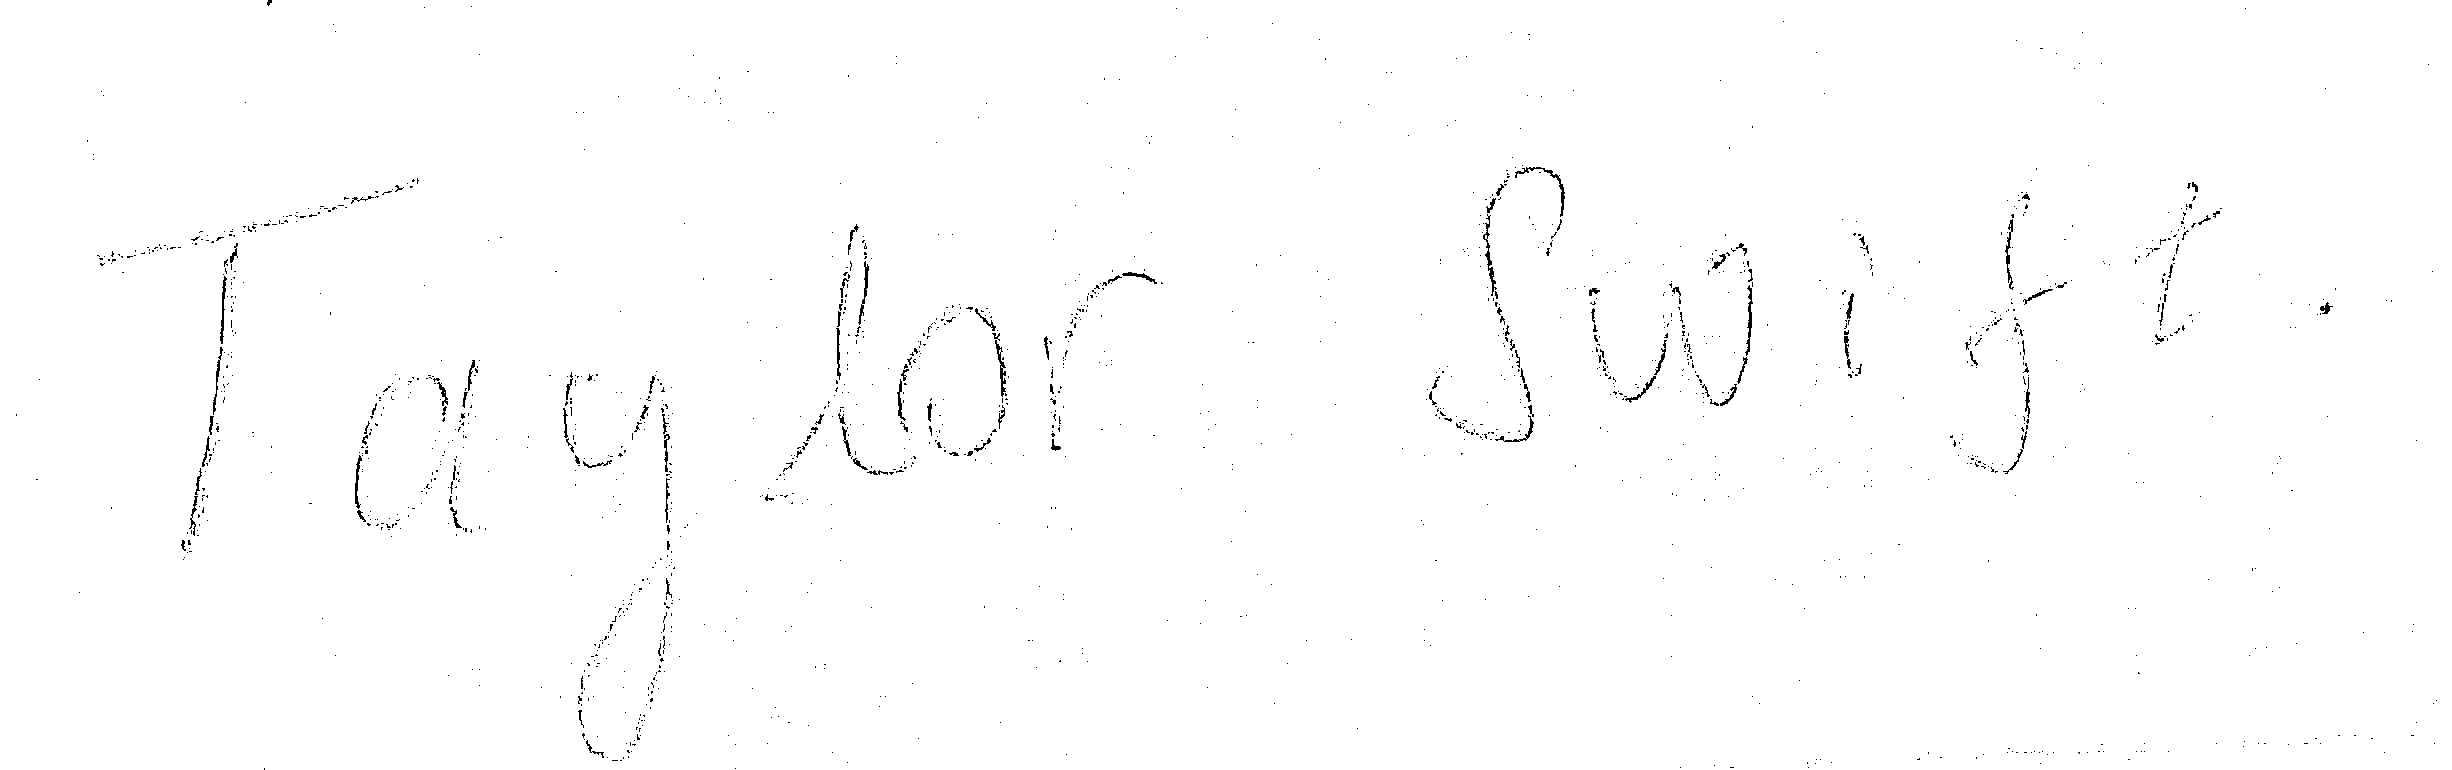 Taylor Swift.